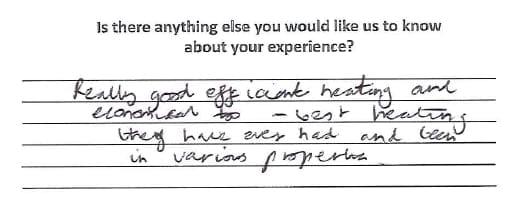 Is there anything else you would like us to know
about your experience?
Really good efficient heating and
economical too - best heating
they have ever had and been
in various properties